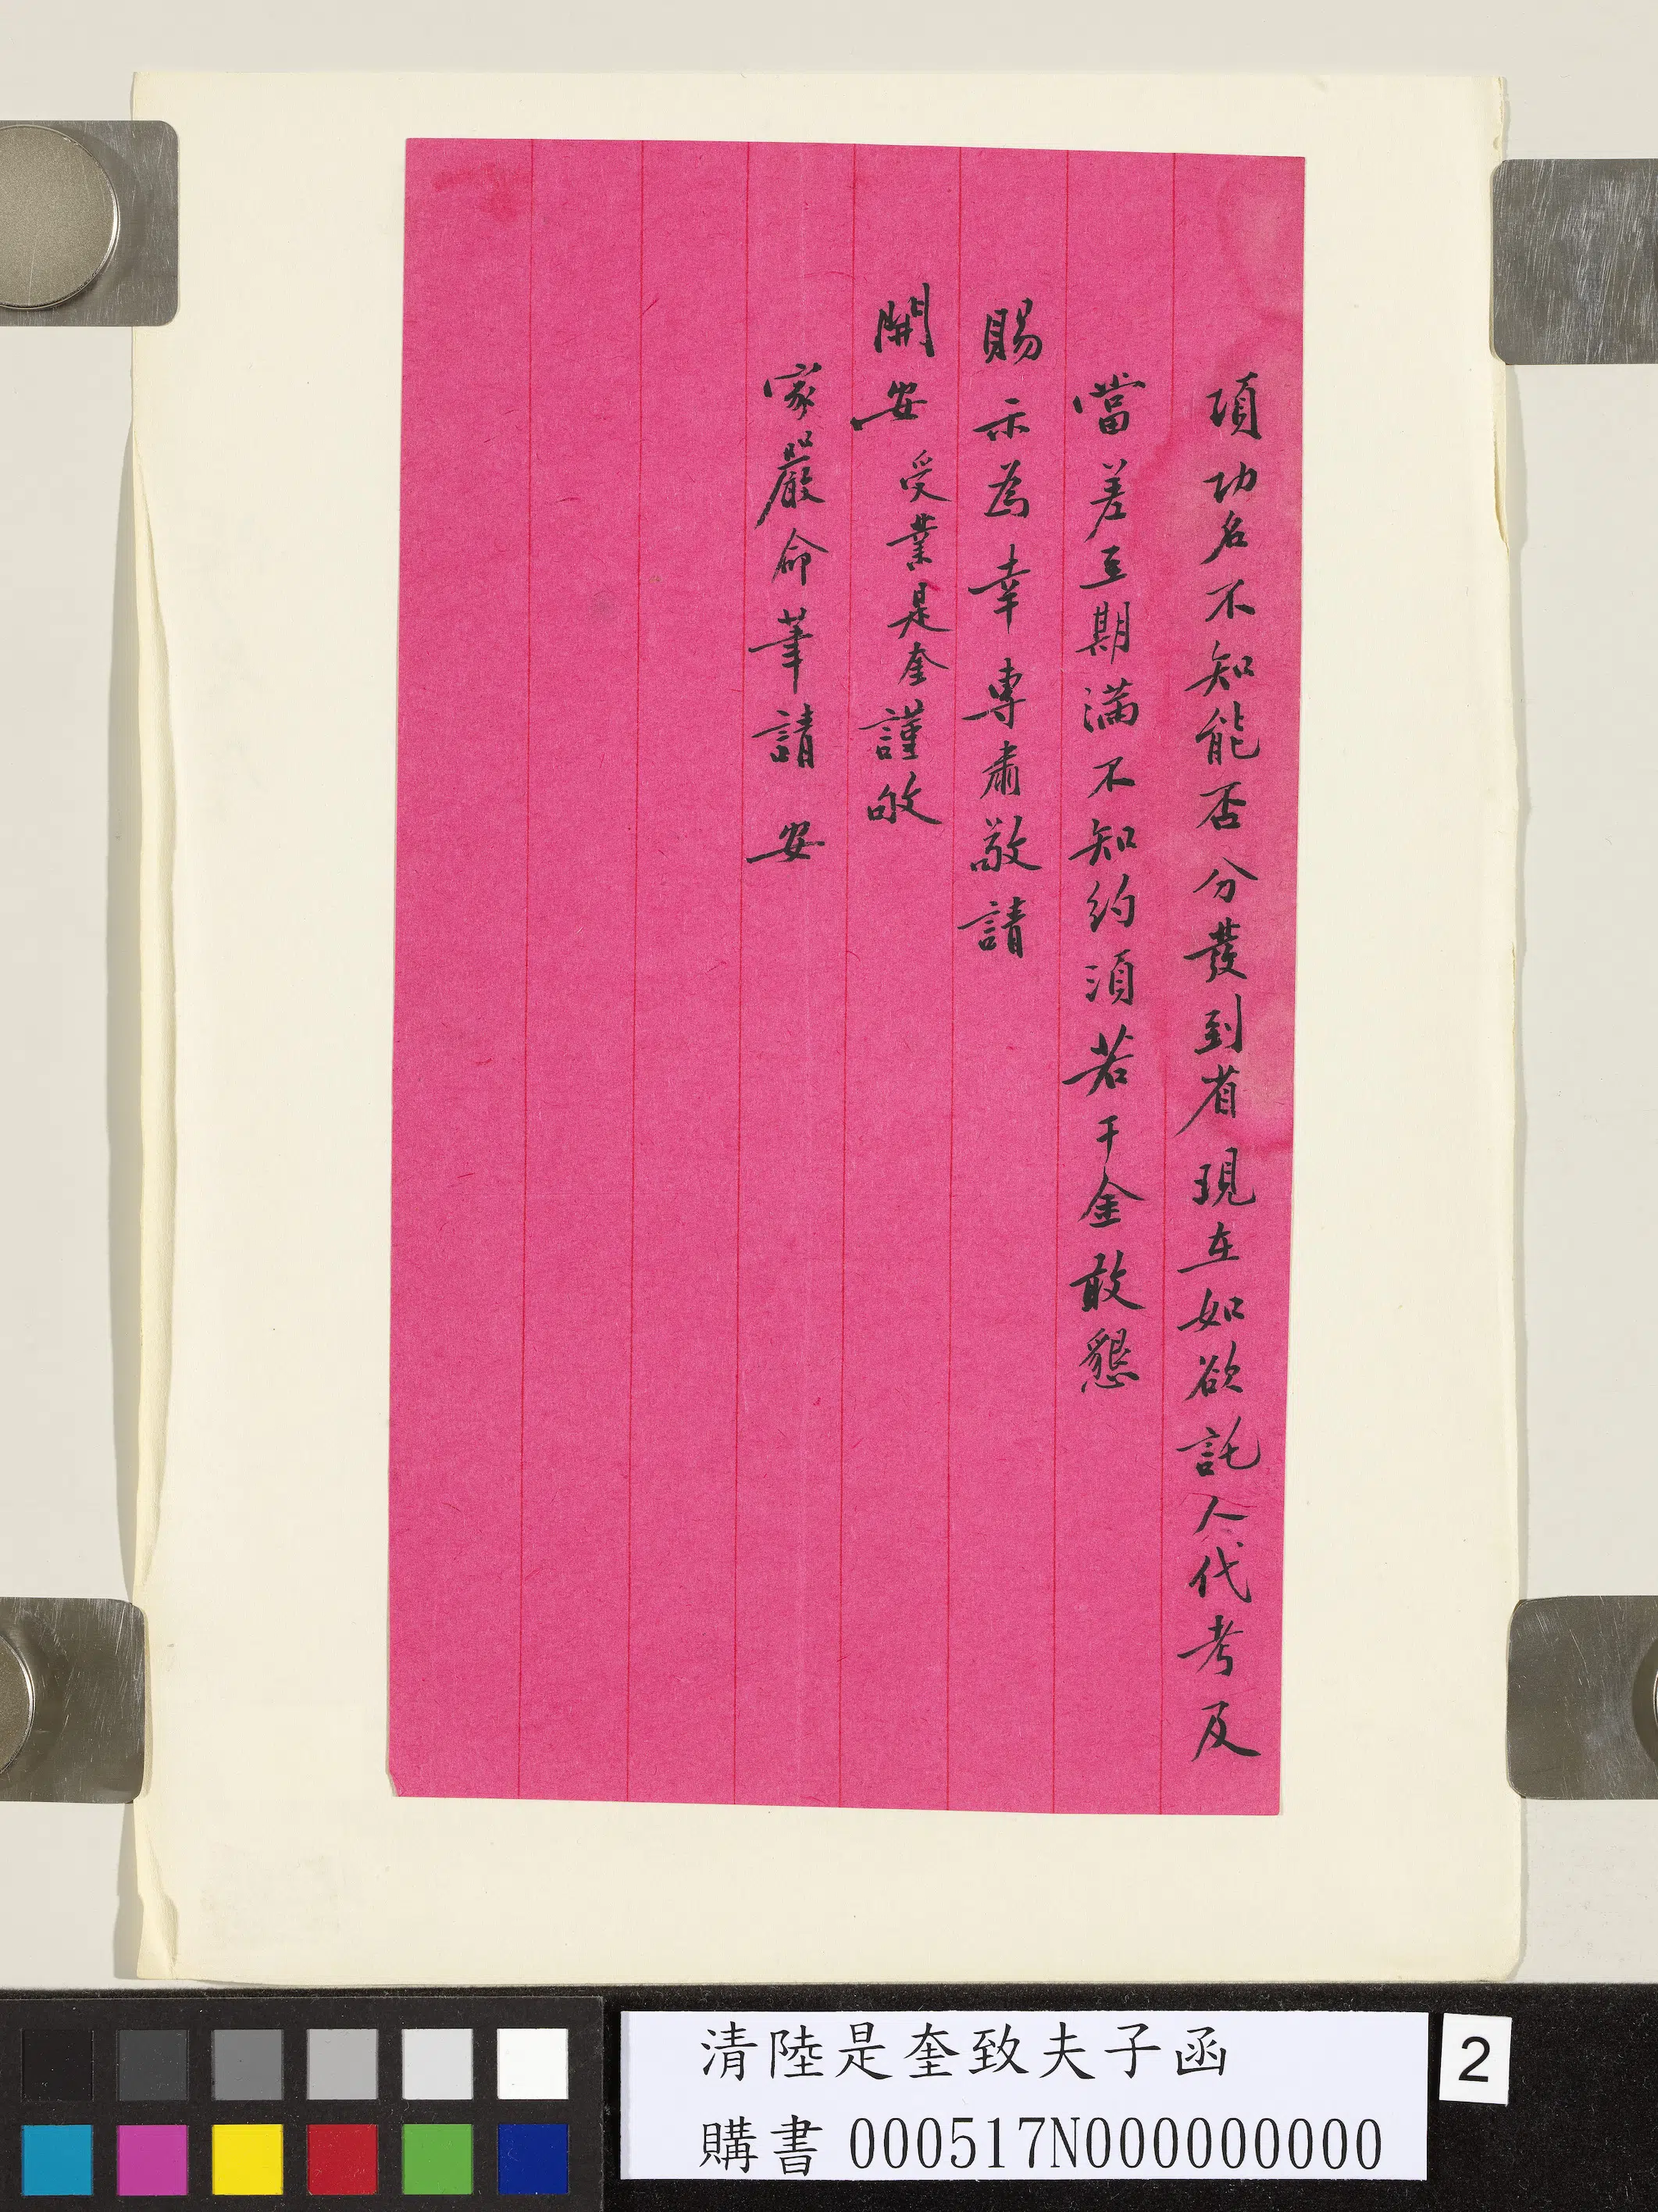 項功名不知能否分發到省現在如欲託人代考及
當差至期滿不知約須若干金敢懇
賜示為幸專肅敬請
開安受業是奎謹啟
家嚴命筆請安
清陸是奎致夫子函
購書 000517N000000000
2